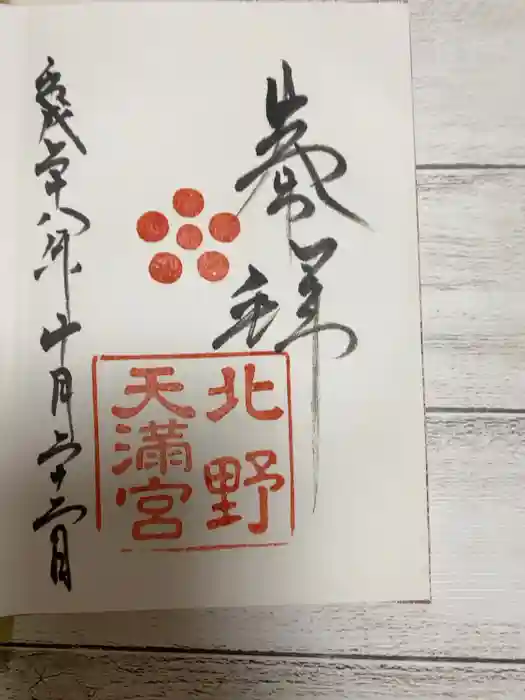 拝
北野
天満宮
平成二十八年十月二十二日